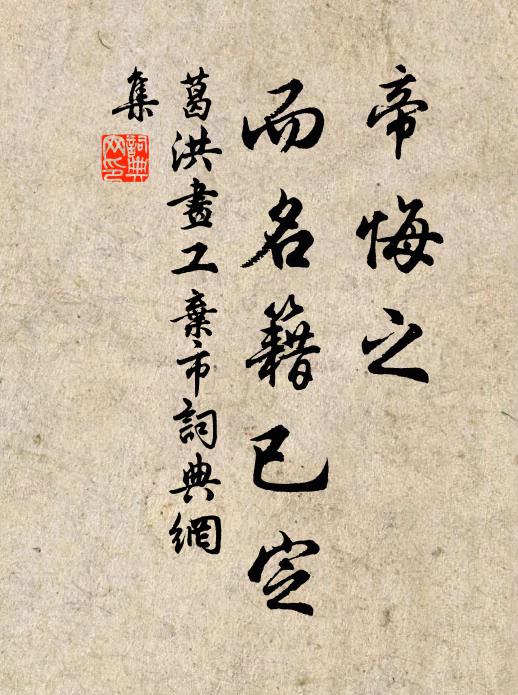 帝悔之
而名籍已定
葛洪畫工棄市詞典網
集
詞典
网印